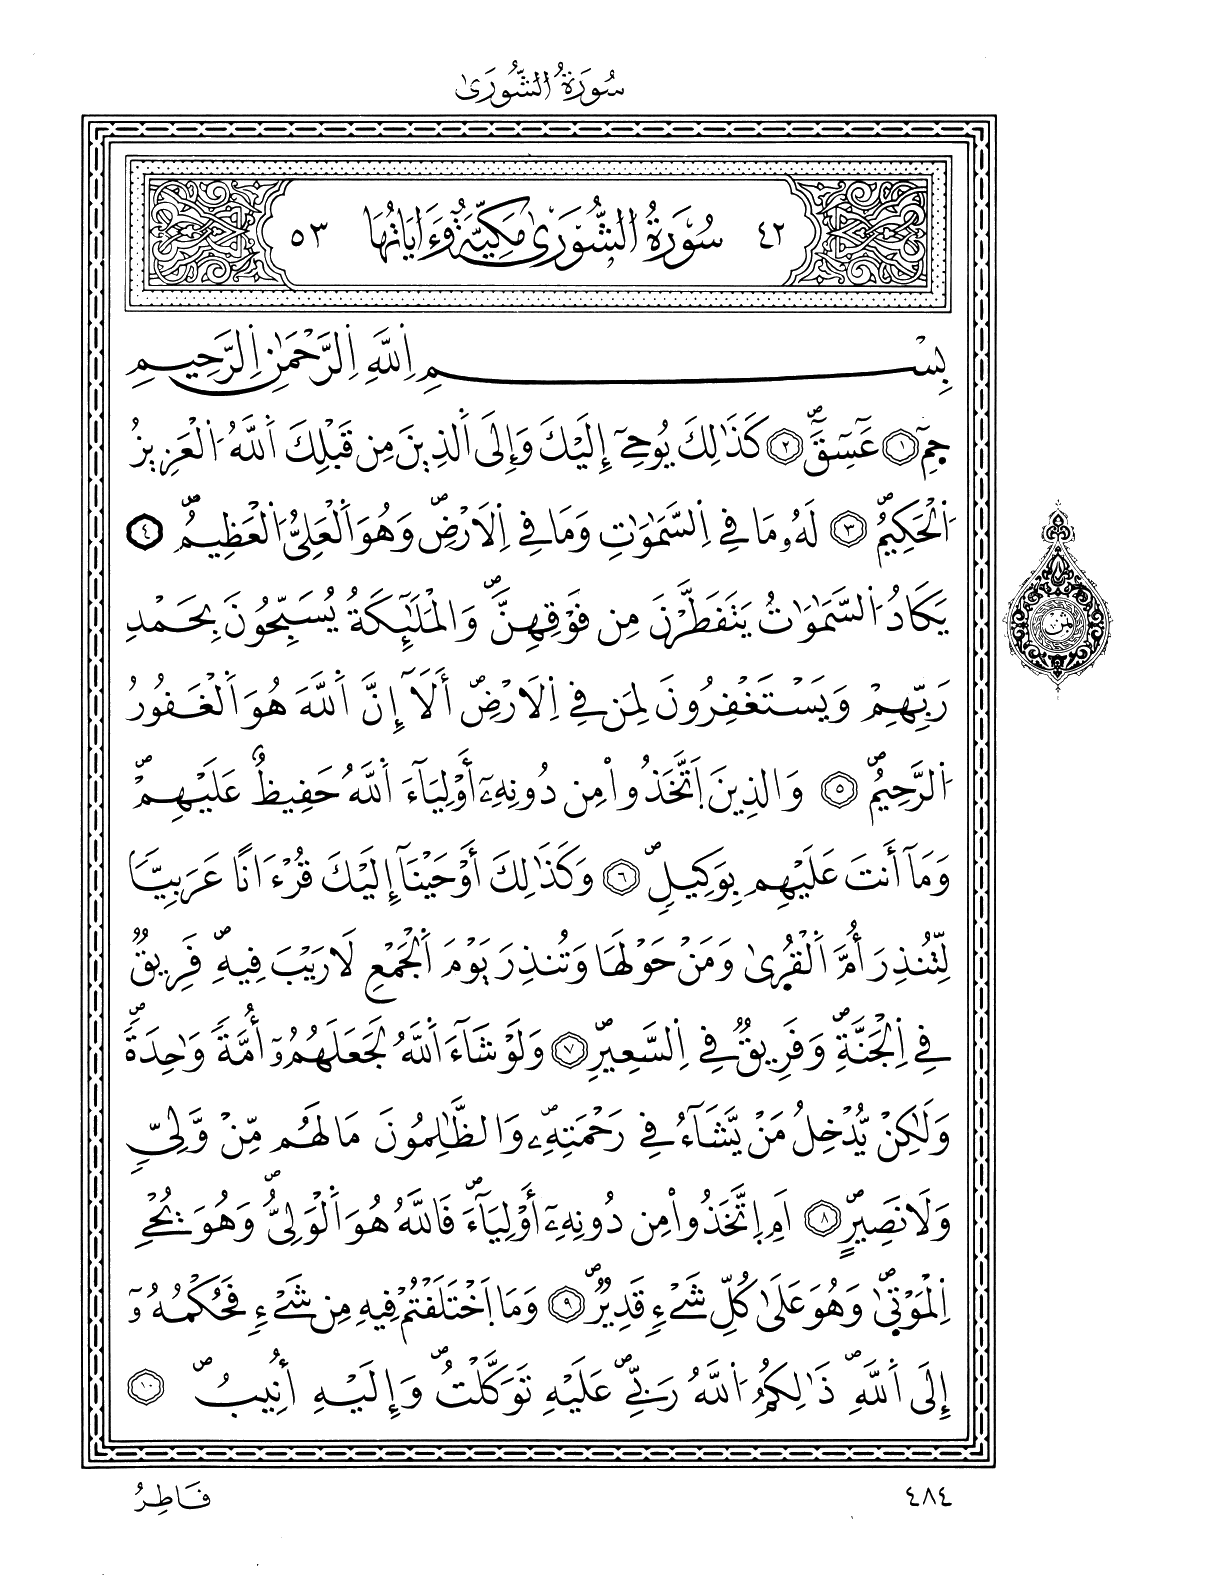 سُورَةُ الشُّورَىٰ
٤٢ سُورَةُ الشُّورَىٰ مَكِّيَّةٌ وَءَايَاتُهَا ٥٣
بِسْمِ اِ۬للَّهِ اِ۬لرَّحْمَٰنِ اِ۬لرَّحِيمِ
جٓمِٓ ١ عَٓسِٓقَٓۖ ٢ كَذَٰلِكَ يُوحِےٓ إِلَيْكَ وَإِلَى اَ۬لذِينَ مِن قَبْلِكَ اَ۬للَّهُ اُ۬لْعَزِيزُ
اُ۬لْحَكِيمُۖ ٣ لَهُۥ مَا فِے اِ۬لسَّمَٰوَٰتِ وَمَا فِے اِ۬لَارْضِۖ وَهُوَ اَ۬لْعَلِيُّ اُ۬لْعَظِيمُۖ ٤
يَكَادُ اُ۬لسَّمَٰوَٰتُ يَتَفَطَّرْنَ مِن فَوْقِهِنَّۖ وَالْمَلَٰٓئِكَةُ يُسَبِّحُونَ بِحَمْدِ
رَبِّهِمْ وَيَسْتَغْفِرُونَ لِمَن فِے اِ۬لَارْضِۖ أَلَآ إِنَّ اَ۬للَّهَ هُوَ اَ۬لْغَفُورُ
اُ۬لرَّحِيمُۖ ٥ وَالذِينَ اَ۪تَّخَذُواْ مِن دُونِهِۦٓ أَوْلِيَآءَ اَ۬للَّهُ حَفِيظٌ عَلَيْهِمْۖ
وَمَآ أَنتَ عَلَيْهِم بِوَكِيلٍۖ ٦ وَكَذَٰلِكَ أَوْحَيْنَآ إِلَيْكَ قُرْءَاناً عَرَبِيّاً
لِّتُنذِرَ أُمَّ اَ۬لْقُرَىٰ وَمَنْ حَوْلَهَا وَتُنذِرَ يَوْمَ اَ۬لْجَمْعِ لَا رَيْبَ فِيهِۖ فَرِيقٌ
فِے اِ۬لْجَنَّةِۖ وَفَرِيقٌ فِے اِ۬لسَّعِيرِۖ ٧ وَلَوْ شَآءَ اَ۬للَّهُ لَجَعَلَهُمُۥٓ أُمَّةً وَٰحِدَةًۖ
وَلَٰكِنْ يُّدْخِلُ مَنْ يَّشَآءُ فِے رَحْمَتِهِۦۖ وَالظَّٰلِمُونَ مَا لَهُم مِّنْ وَّلِيّٖ
وَلَا نَصِيرٍۖ ٨ اَمِ اِ۪تَّخَذُواْ مِن دُونِهِۦٓ أَوْلِيَآءَۖ فَاللَّهُ هُوَ اَ۬لْوَلِيُّۖ وَهُوَ يُحْيِ
اِ۬لْمَوْتَىٰۖ وَهُوَ عَلَىٰ كُلِّ شَےْءٖ قَدِيرٌۖ ٩ وَمَا اَ۪خْتَلَفْتُمْ فِيهِ مِن شَےْءٖ فَحُكْمُهُۥٓ
إِلَى اَ۬للَّهِۖ ذَٰلِكُمُ اُ۬للَّهُ رَبِّےۖ عَلَيْهِ تَوَكَّلْتُۖ وَإِلَيْهِ أُنِيبُۖ ١٠
ثمن
٤٨٤
فَاطِرُ